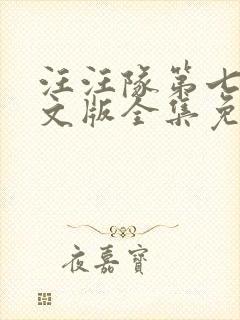 汪汪队第七
文版全集免
夜嘉寶